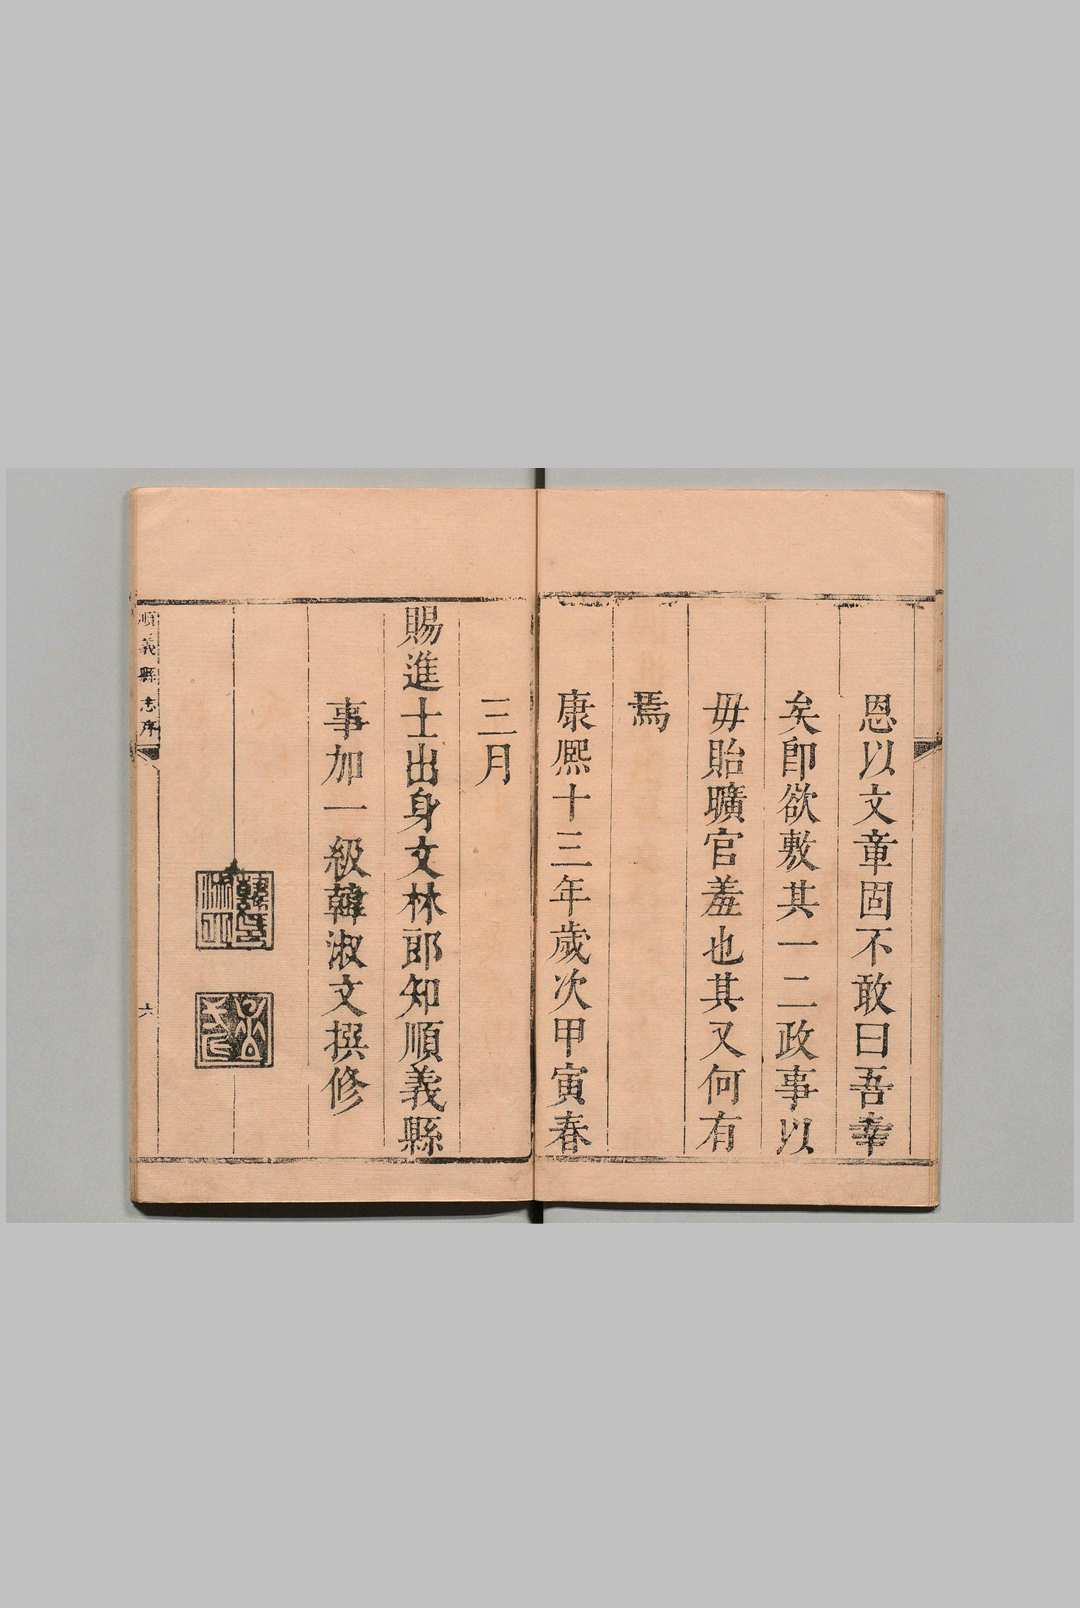 恩以文章固不敢曰吾幸
矣卽欲敷其一二政事以
毋貽曠官羞也其又何有
焉
康熙十三年歲次甲寅春
三月
賜進士出身文林郎知順義縣
事加一級韓淑文撰修
順義縣志序
六